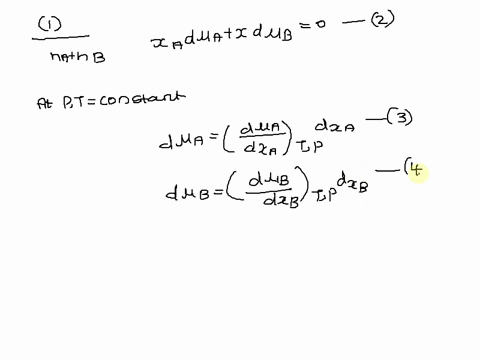 (1)
nA+nB
xAdμA+xdμB=0 —(2)
At P,T=constant
dμA=(dμA/dxA)T,P dxA —(3)
dμB=(dμB/dxB)T,P dxB —(4